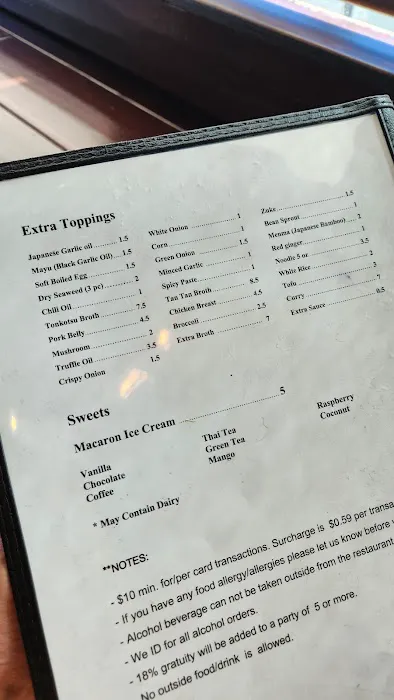 Extra Toppings
Japanese Garlic oil 1.5
Mayu (Black Garlic Oil) 1.5
Soft Boiled Egg 1.5
Dry Seaweed (3 pc) 2
Chili Oil 1
Tonkotsu Broth 7.5
Pork Belly 4.5
Mushroom 2
Truffle Oil 3.5
Crispy Onion 1.5
White Onion 1
Corn 1
Green Onion 1.5
Minced Garlic 1
Spicy Paste 1
Tan Tan Broth 8.5
Chicken Breast 4.5
Broccoli 2.5
Extra Broth 7
Zuke 1.5
Bean Sprout 1
Menma (Japanese Bamboo)
Red ginger 1
Noodle 5 or 3.5
White Rice 2
Tofu 3
Curry 7
Extra Sauce 0.5
Sweets
Macaron Ice Cream 5
Vanilla
Chocolate
Coffee
Thai Tea
Green Tea
Mango
Raspberry
Coconut
* May Contain Dairy
**NOTES:
- $10 min. for/per card transactions. Surcharge is $0.59 per transa
- If you have any food allergy/allergies please let us know before
- Alcohol beverage can not be taken outside from the restaurant
- We ID for all alcohol orders.
- 18% gratuity will be added to a party of 5 or more.
No outside food/drink is allowed.